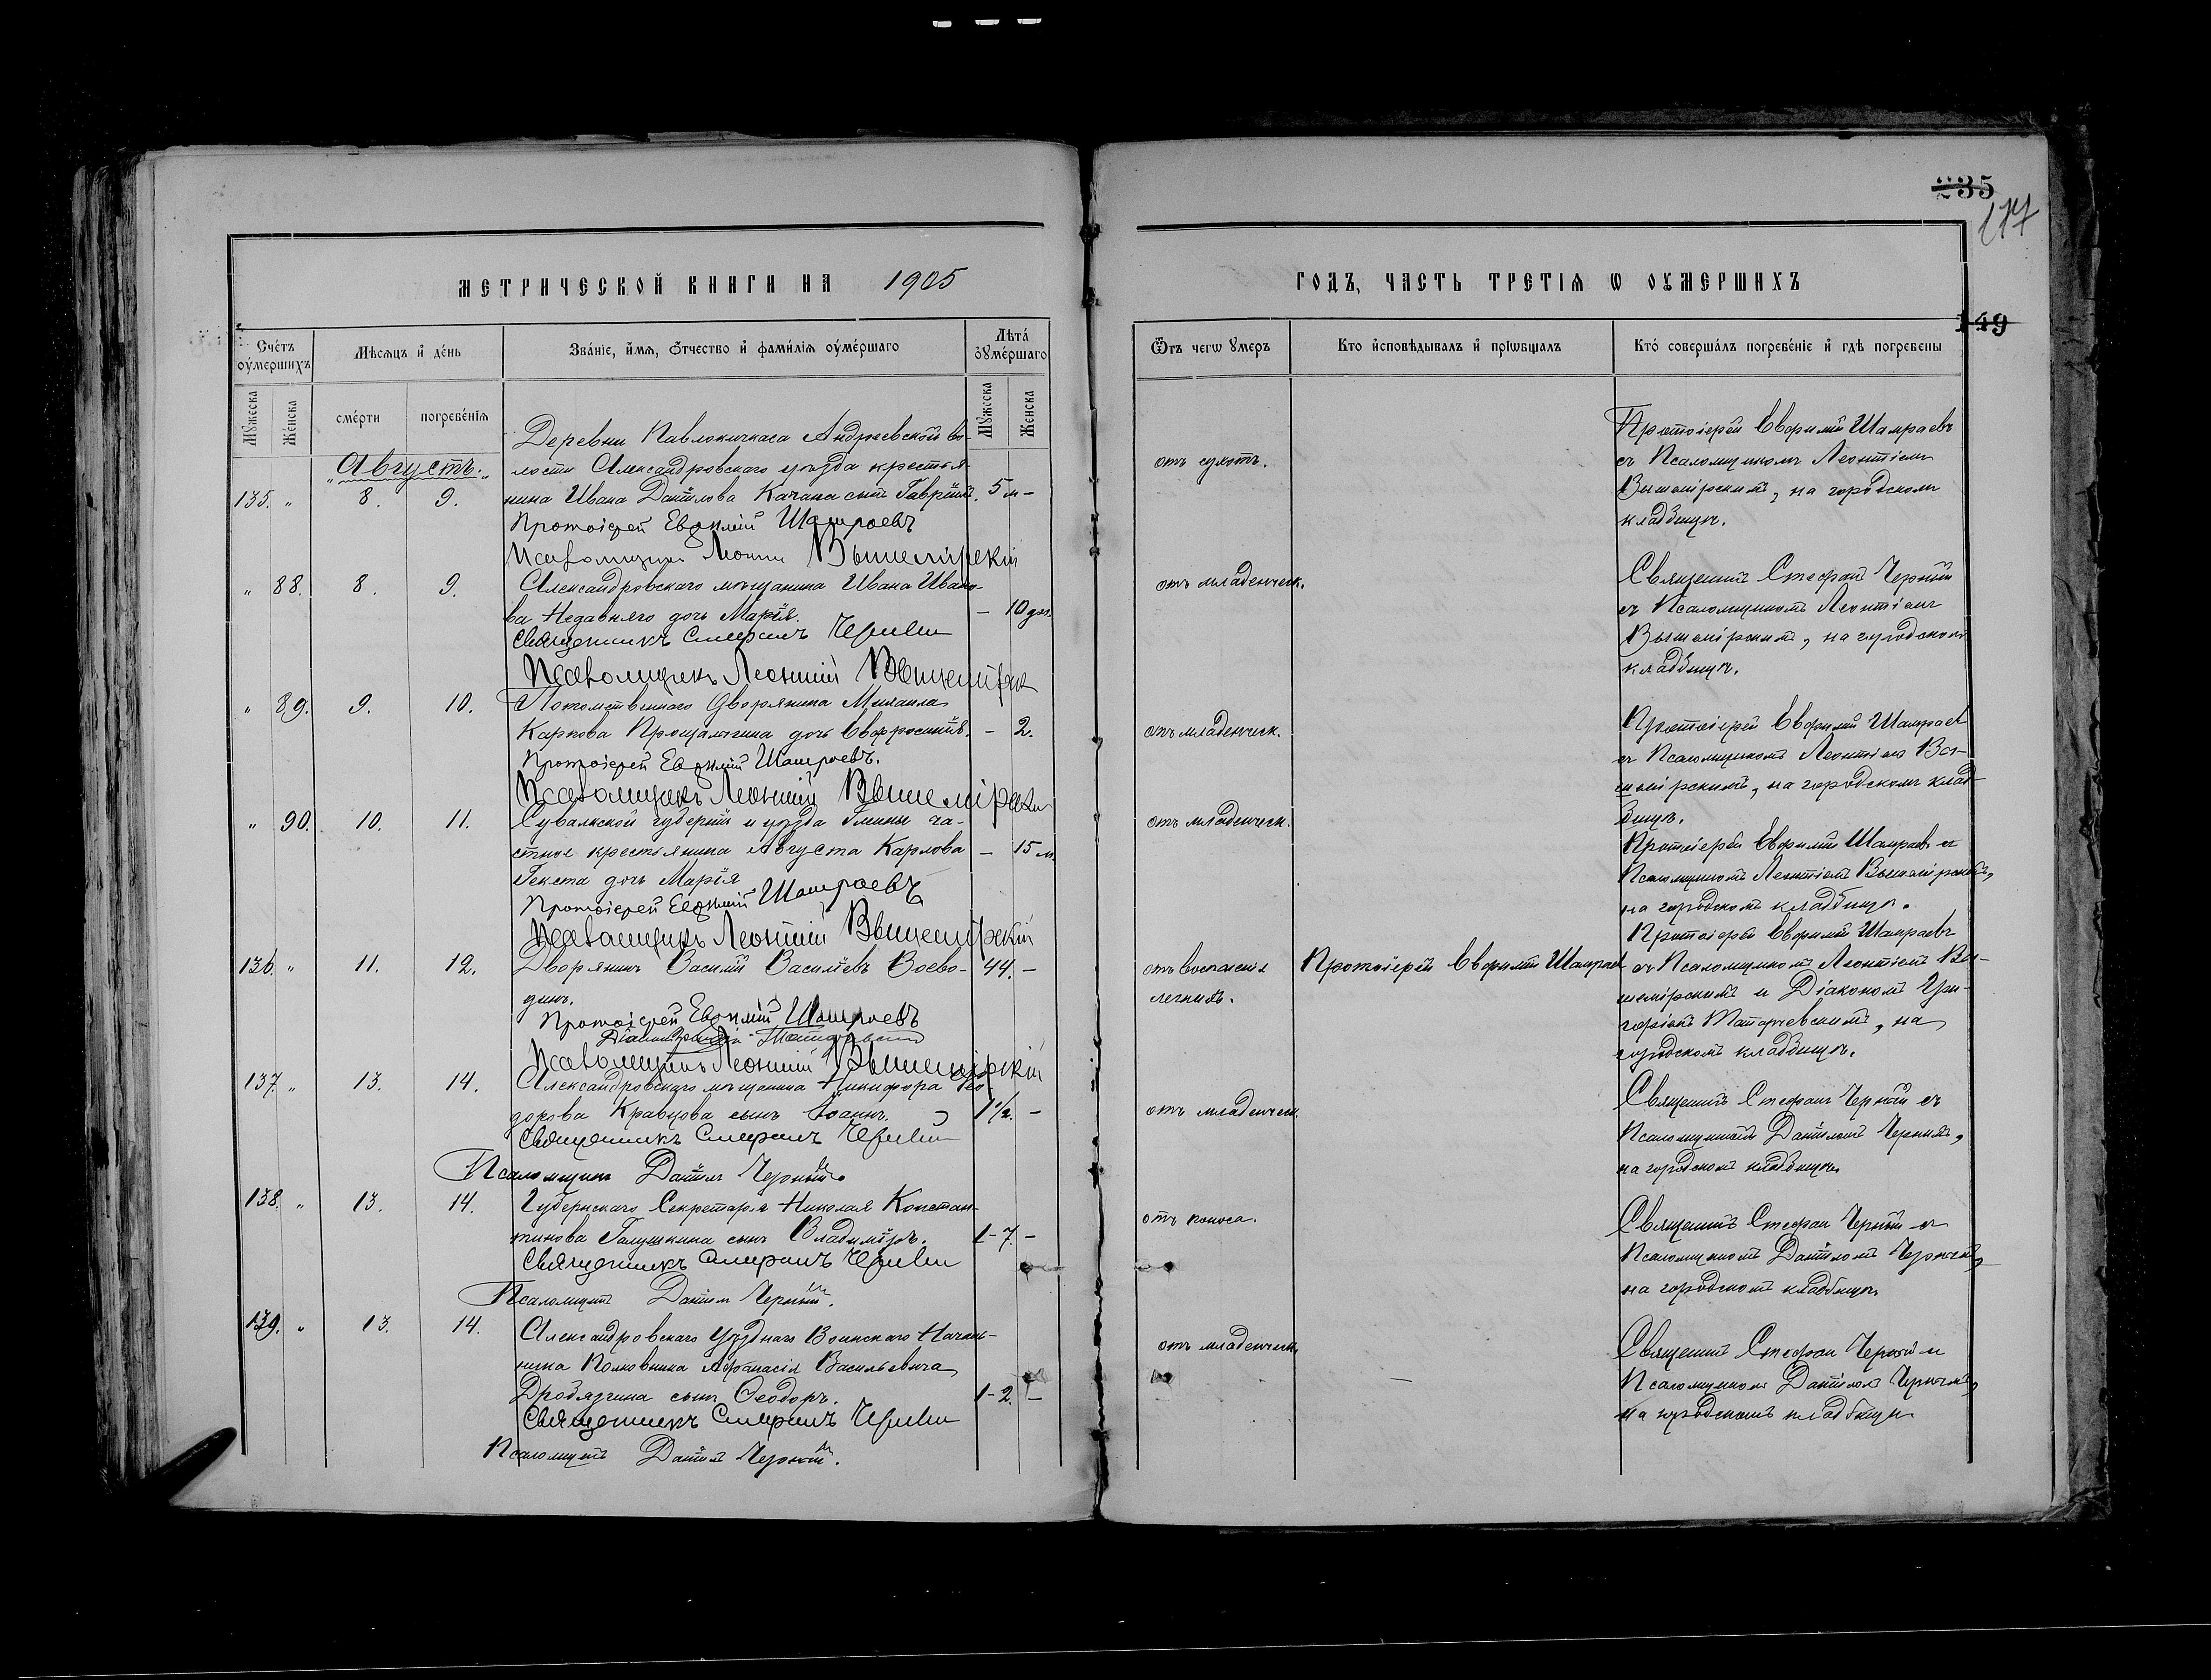 235
177
МЕТРИЧЕСКОЙ КНИГИ НА 1905
ГОДЪ, ЧАСТЬ ТРЕТІѦ Ѡ ОУМЕРШИХЪ
149
Счетъ оумершихъ
Мѣсѧцъ и день
Званіе, имѧ, отчество и фамиліѧ оумершаго
Лѣта оумершаго
Мужеска
Женска
смерти
погребеніѧ
Мужеска
Женска
Ѿ чегѡ умеръ
Кто исповѣдывалъ и пріѡбщалъ
Кто совершалъ погребеніе и гдѣ погребены
„Августъ„
135. " 8. 9.
Деревни Павлокичкаса Андреевской во-
лости Александровскаго уѣзда крестья-
нина Ивана Даніилова Качана сынъ Гавріилъ. 5 м –
Протоіерей Евфимій Шамраевъ
Псаломщикъ Леонтій Вышемірскій
отъ сухотъ.
Протоіерей Евфимій Шамраевъ
съ Псаломщикомъ Леонтіемъ
Вышемірскимъ, на городскомъ
кладбищѣ.
" 88. 8. 9.
Александровскаго мѣщанина Ивана Ивано-
ва Недавняго дочь Марія. – 10 дн.
Священникъ Стефанъ Черный
Псаломщикъ Леонтій Вышемірскій
отъ младенческ.
Священникъ Стефанъ Черный
съ Псаломщикомъ Леонтіемъ
Вышемірскимъ, на городскомъ
кладбищѣ.
" 89. 9. 10.
Потомственнаго Дворянина Михаила
Карпова дочь Евфросинія. – 2.
Протоіерей Евфимій Шамраевъ.
Псаломщикъ Леонтій Вышемірскій
отъ младенческ.
Протоіерей Евфимій Шамраевъ
съ Псаломщикомъ Леонтіемъ Вы-
шемірскимъ, на городскомъ клад-
бищѣ.
" 90. 10. 11.
Сувалкской губерніи и уѣзда Гмины
крестьянина Августа Карлова – 15 м.
дочь Марія
Протоіерей Евфимій Шамраевъ
Псаломщикъ Леонтій Вышемірскій
отъ младенческ.
Протоіерей Евфимій Шамраевъ съ
Псаломщикомъ Леонтіемъ Вышемірскимъ,
на городскомъ кладбищѣ.
136. " 11. 12.
Дворянинъ Василій Василіевъ Воево- 44. –
динъ.
Протоіерей Евфимій Шамраевъ
Діаконъ
Псаломщикъ Леонтій Вышемірскій
отъ воспаленія
легкихъ.
Протоіерей Евфимій Шамраевъ
Протоіерей Евфимій Шамраевъ
съ Псаломщикомъ Леонтіемъ Вы-
шемірскимъ и Діакономъ Гри-
горіемъ на
городскомъ кладбищѣ.
137. " 13. 14.
Александровскаго мѣщанина Никифора Ѳео-
дорова Кравцова сынъ Іоаннъ. 1½. –
Священникъ Стефанъ Черный
Псаломщикъ Даніилъ Черный.
отъ младенческ.
Священникъ Стефанъ Черный съ
Псаломщикомъ Даніиломъ Чернымъ,
на городскомъ кладбищѣ.
138. " 13. 14.
Губернскаго Секретаря Николая Констан-
тинова Галушкина сынъ Владиміръ. 1-7. –
Священникъ Стефанъ Черный
Псаломщикъ Даніилъ Черный.
отъ поноса.
Священникъ Стефанъ Черный съ
Псаломщикомъ Даніиломъ Чернымъ,
на городскомъ кладбищѣ.
139. " 13. 14.
Александровскаго Уѣзднаго Воинскаго Началь-
ника Полковника Афанасія Васильевича
Дробязгина сынъ Ѳеодоръ. 1-2. –
Священникъ Стефанъ Черный
Псаломщикъ Даніилъ Черный.
отъ младенческ.
Священникъ Стефанъ Черный съ
Псаломщикомъ Даніиломъ Чернымъ,
на городскомъ кладбищѣ